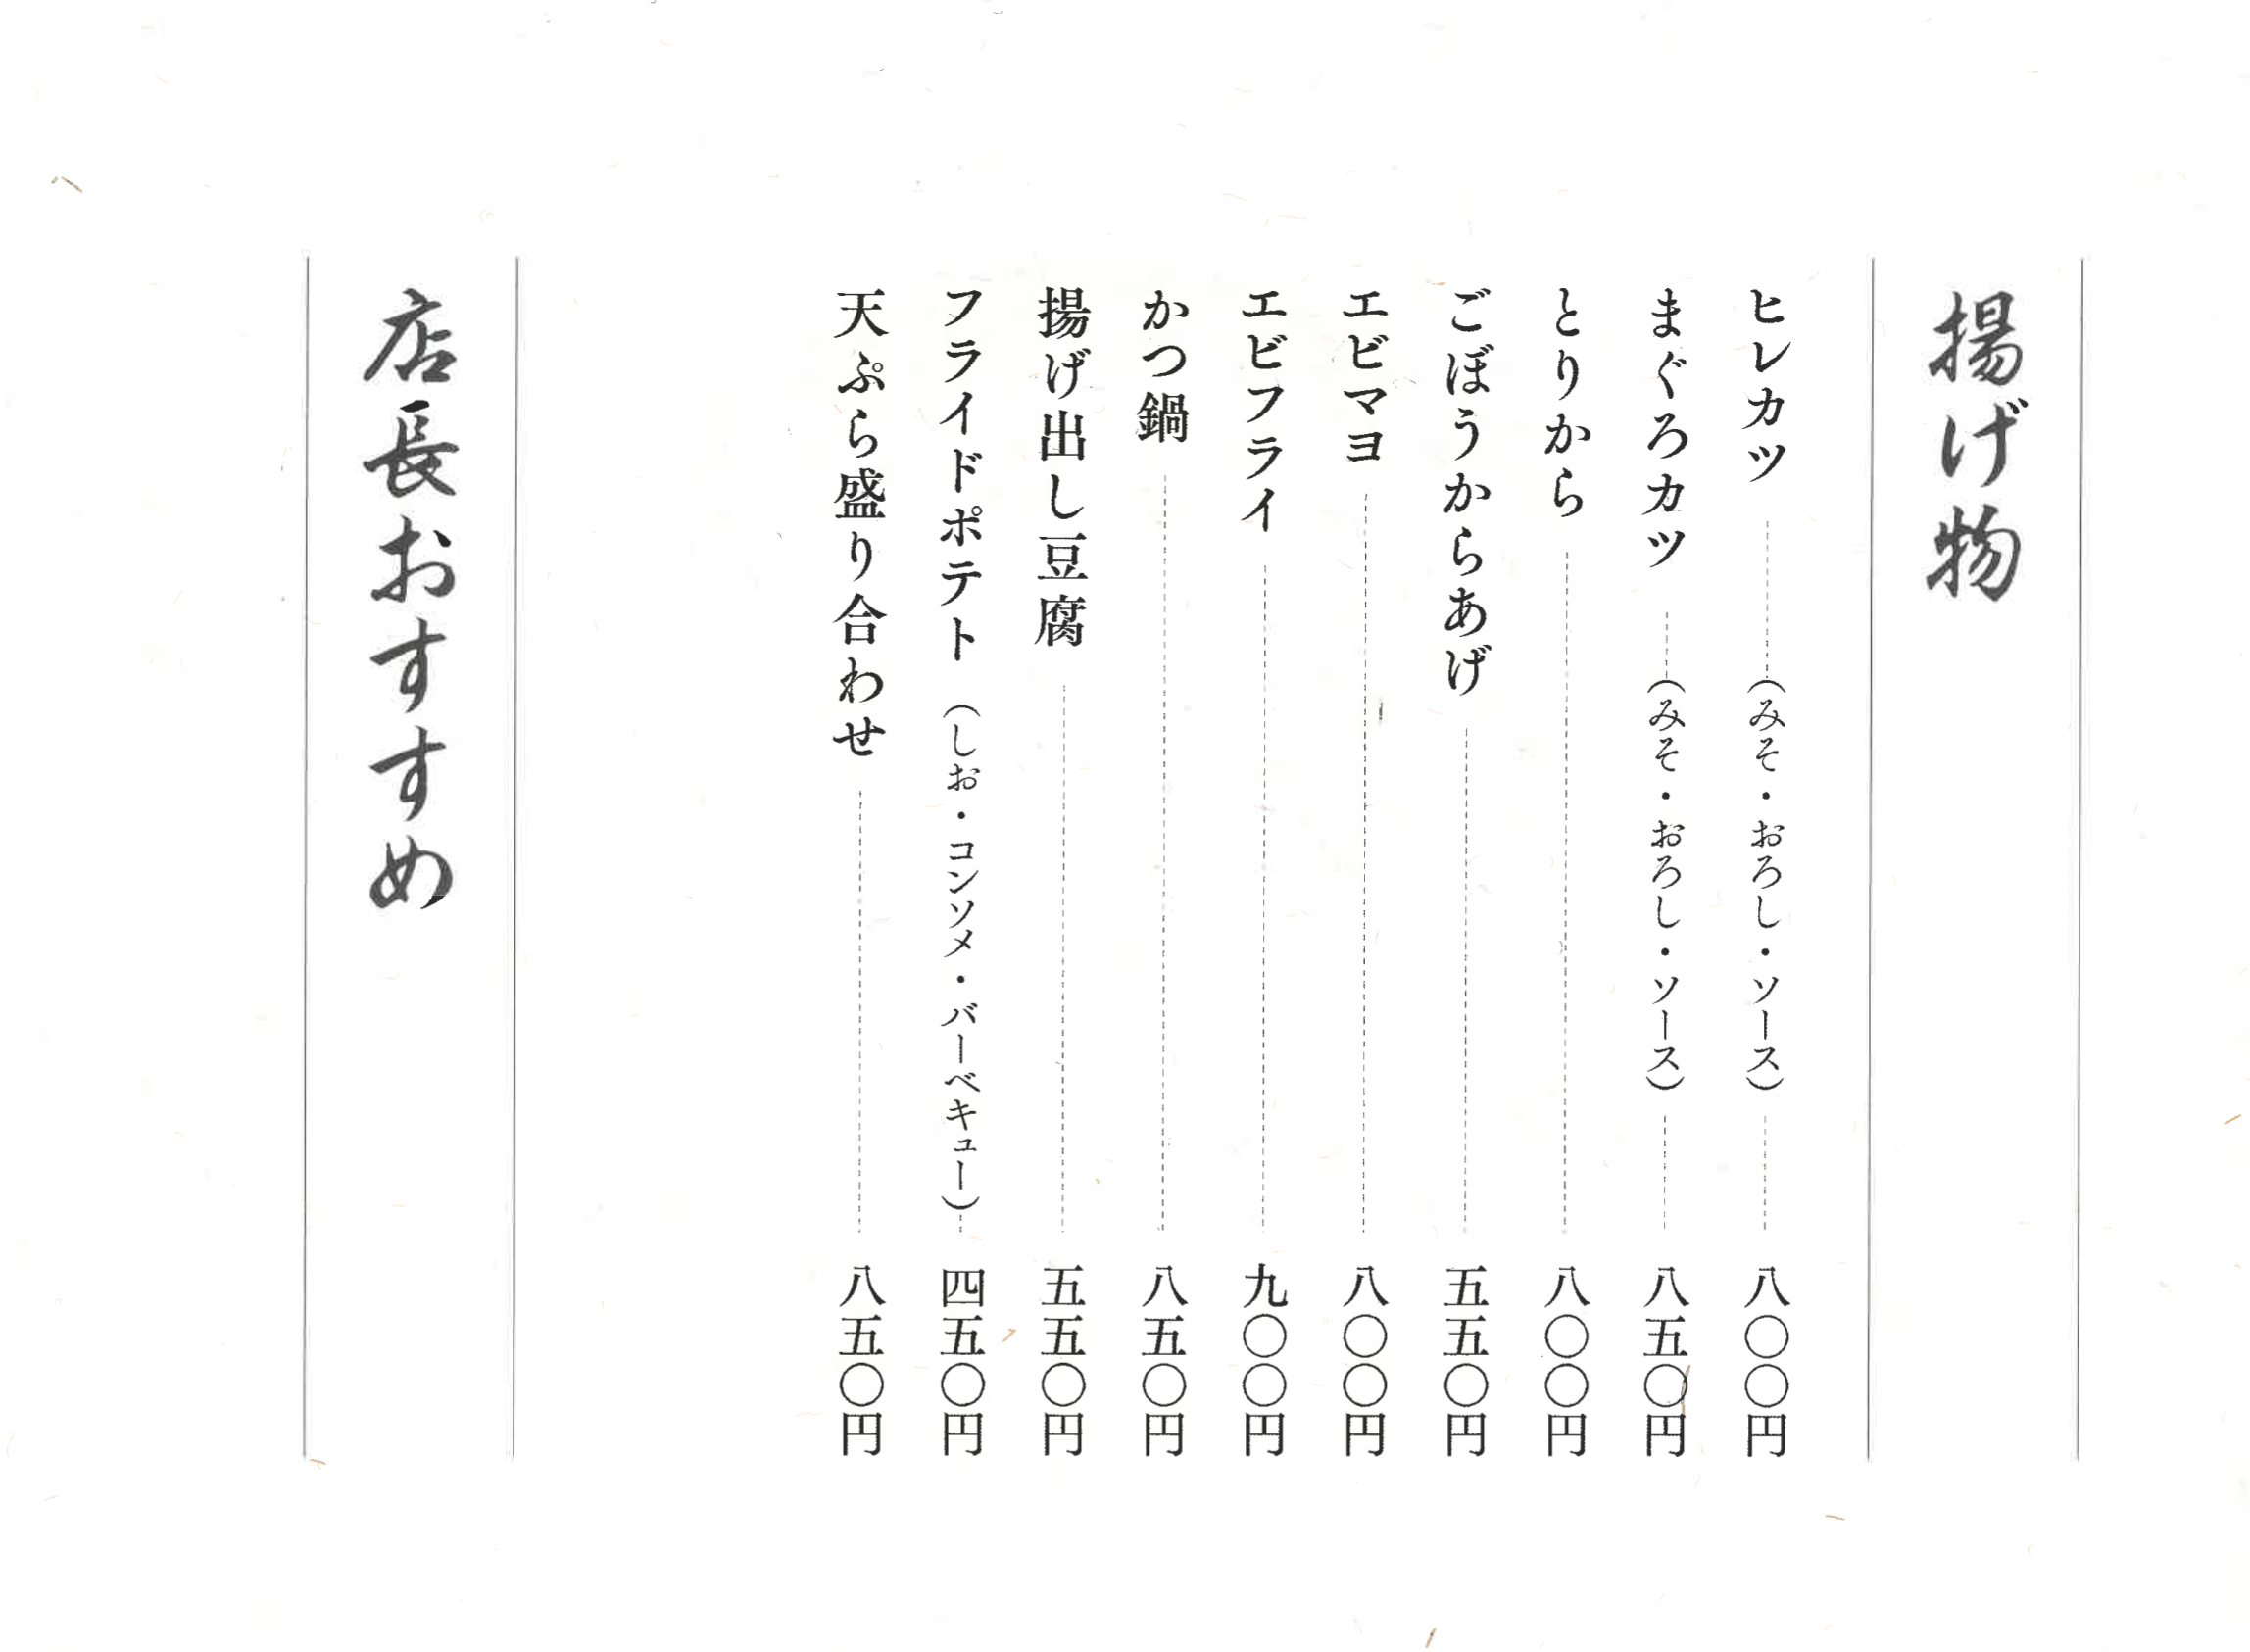 揚げ物
ヒレカツ（みそ・おろし・ソース）八〇〇円
まぐろカツ（みそ・おろし・ソース）八五〇円
とりから八〇〇円
ごぼうからあげ五五〇円
エビマヨ八〇〇円
エビフライ九〇〇円
かつ鍋八五〇円
揚げ出し豆腐五五〇円
フライドポテト（しお・コンソメ・バーベキュー）四五〇円
天ぷら盛り合わせ八五〇円
店長おすすめ